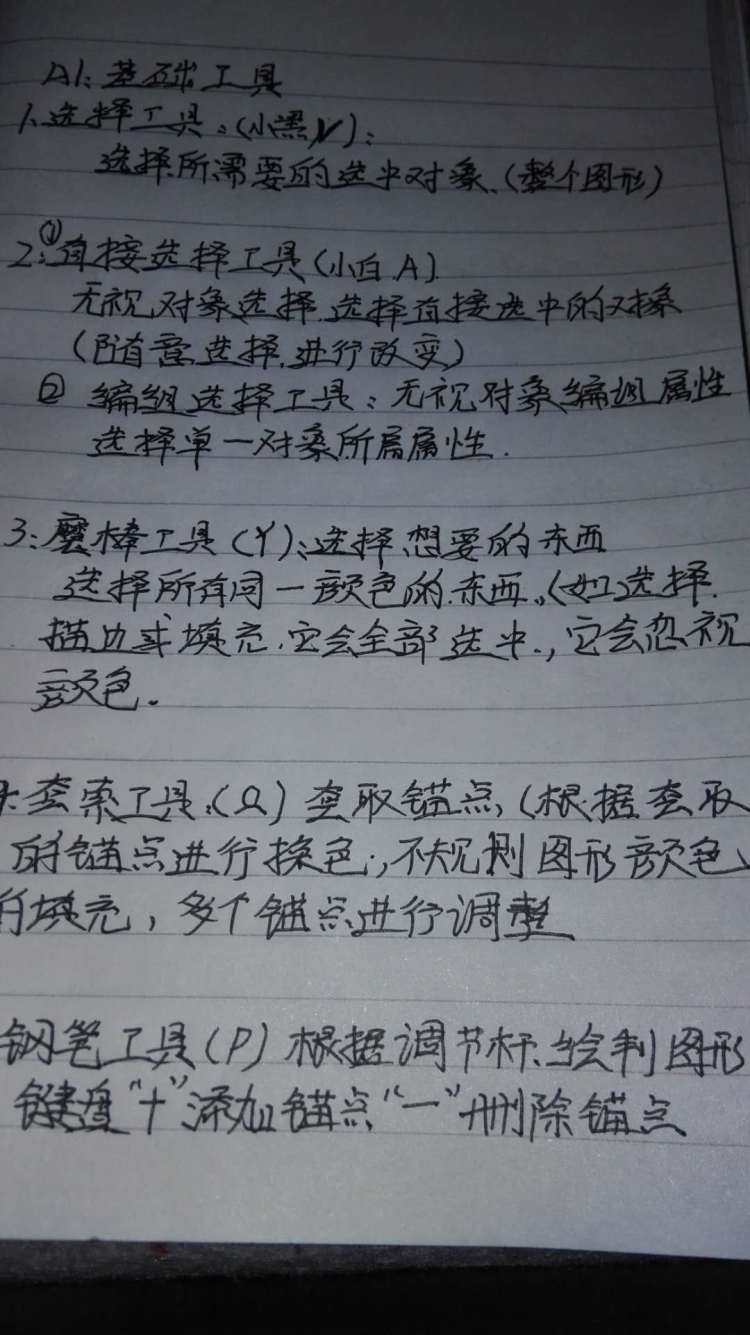 AI:基础工具
1、选择工具。(小黑V):
选择所需要的选中对象.(整个图形)
2:①直接选择工具(小白.A)
无视对象选择.选择直接选中的对象
(随意选择.进行改变)
② 编组选择工具:无视对象编组属性
选择单一对象所属属性.
3:魔棒工具(Y):选择.想要的东西
选择所有同一颜色的.东西。(如选择.
描边或填充.它会全部选中.,它会忽视
颜色.
套索工具.(Q)套取锚点,(根据套取
的锚点进行换色.,不规则图形颜色
的填充,多个锚点进行调整
钢笔工具(P)根据调节杆.绘制图形
键盘"+"添加锚点"一"删除锚点